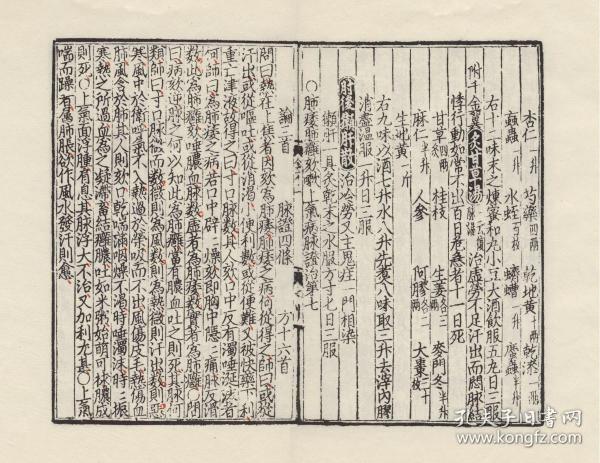 杏仁一升 芍藥四兩 乾地黃十兩 乾漆一兩
蝱蟲一升 水蛭百枚 蠐螬一升 䗪蟲半升
右十二味末之煉蜜和丸小豆大酒飲服五丸日三服
附千金翼炙甘草湯治虛勞不足汗出而悶脉結
悸行動如常不出百日危急者十一日死
甘草四兩 桂枝 生姜各三兩 麥門冬半升
麻仁半升 人參 阿膠各二兩 大棗三十枚
生地黃一斤
右九味以酒七升水八升先煮八味取三升去滓內膠
消盡溫服一升日三服
肘後獺肝散治冷勞又主鬼疰一門相染
獺肝一具炙乾末之水服方寸匕日三服
○肺痿肺癰欬嗽上氣病脉證治第七
論三首 脉證四條 方十六首
問曰熱在上焦者因欬為肺痿肺痿之病何從得之師曰或從
汗出或從嘔吐或從消渴小便利數或從便難又被快藥下利
重亡津液故得之曰寸口脉數其人欬口中反有濁唾涎沫者
何師曰為肺痿之病若口中辟辟燥欬即胸中隱隱痛脉反滑
數此為肺癰欬唾膿血脉數虛者為肺痿數實者為肺癰○問
曰病欬逆脉之何以知此為肺癰當有膿血吐之則死其脉何
類師曰寸口脉微而數微則為風數則為熱微則汗出數則惡
寒風中於衛呼氣不入熱過於榮吸而不出風傷皮毛熱傷血
脉風舍於肺其人則欬口乾喘滿咽燥不渴時唾濁沫時時振
寒熱之所過血為之凝滯畜結癰膿吐如米粥始萌可捄膿成
則死○上氣面浮腫肩息其脉浮大不治又加利尤甚○上氣
喘而躁者屬肺脹欲作風水發汗則愈
孔夫子旧书网
www.kongfz.com